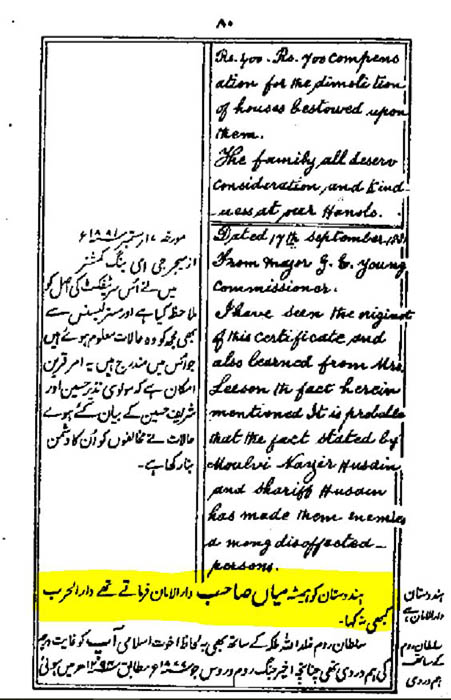 ۸۰
Rs. 400. Rs. 700 compens
ation for the dimolition
of houses bestowed upon
them.
The family all deserv
consideration, and kind-
ness at our Hands.
Dated 17th September 1881
From Major G. E. Young
Commissioner.
I have seen the original
of this certificate and
also learned from Mrs
Leeson the fact herein
mentioned It is probable
that the fact stated by
Moulvi Nazir Husain
and Shariff Husain
has made them enemies
a mong disaffected
persons.
مورخہ ۱۷ ستمبر ۱۸۸۱ء
از میجر جی ای ینگ کمشنر
میں نے اس سرٹیفکٹ کی اصل کو
ملاحظہ کیا ہے اور مسز لیسنس سے
بھی مجھ کو وہ حالات معلوم ہوئے ہیں
جو اس میں مندرج ہیں یہ امر قرین
امکان ہے کہ مولوی نذیر حسین اور
شریف حسین کے بیان کئے ہوے
حالات نے مخالفوں کو اُن کا دشمن
بنا رکھا ہے۔
ہندوستان کو ہمیشہ میاں صاحب دارالامان فرماتے تھے دارالحرب
کبھی نہ کہا۔
ہندوستان
دارالامان ہے
سلطان روم خلد اللہ ملکہ کے ساتھ بھی بہ لحاظ اخوت اسلامی آپ کو غایت درجہ
کی ہمدردی تھی چنانچہ اخیر جنگ روم و روس جو ۱۸۷۷ء مطابق ۱۲۹۴ھ میں ہوئی
سلطان روم
کے ساتھ
ہم دردی